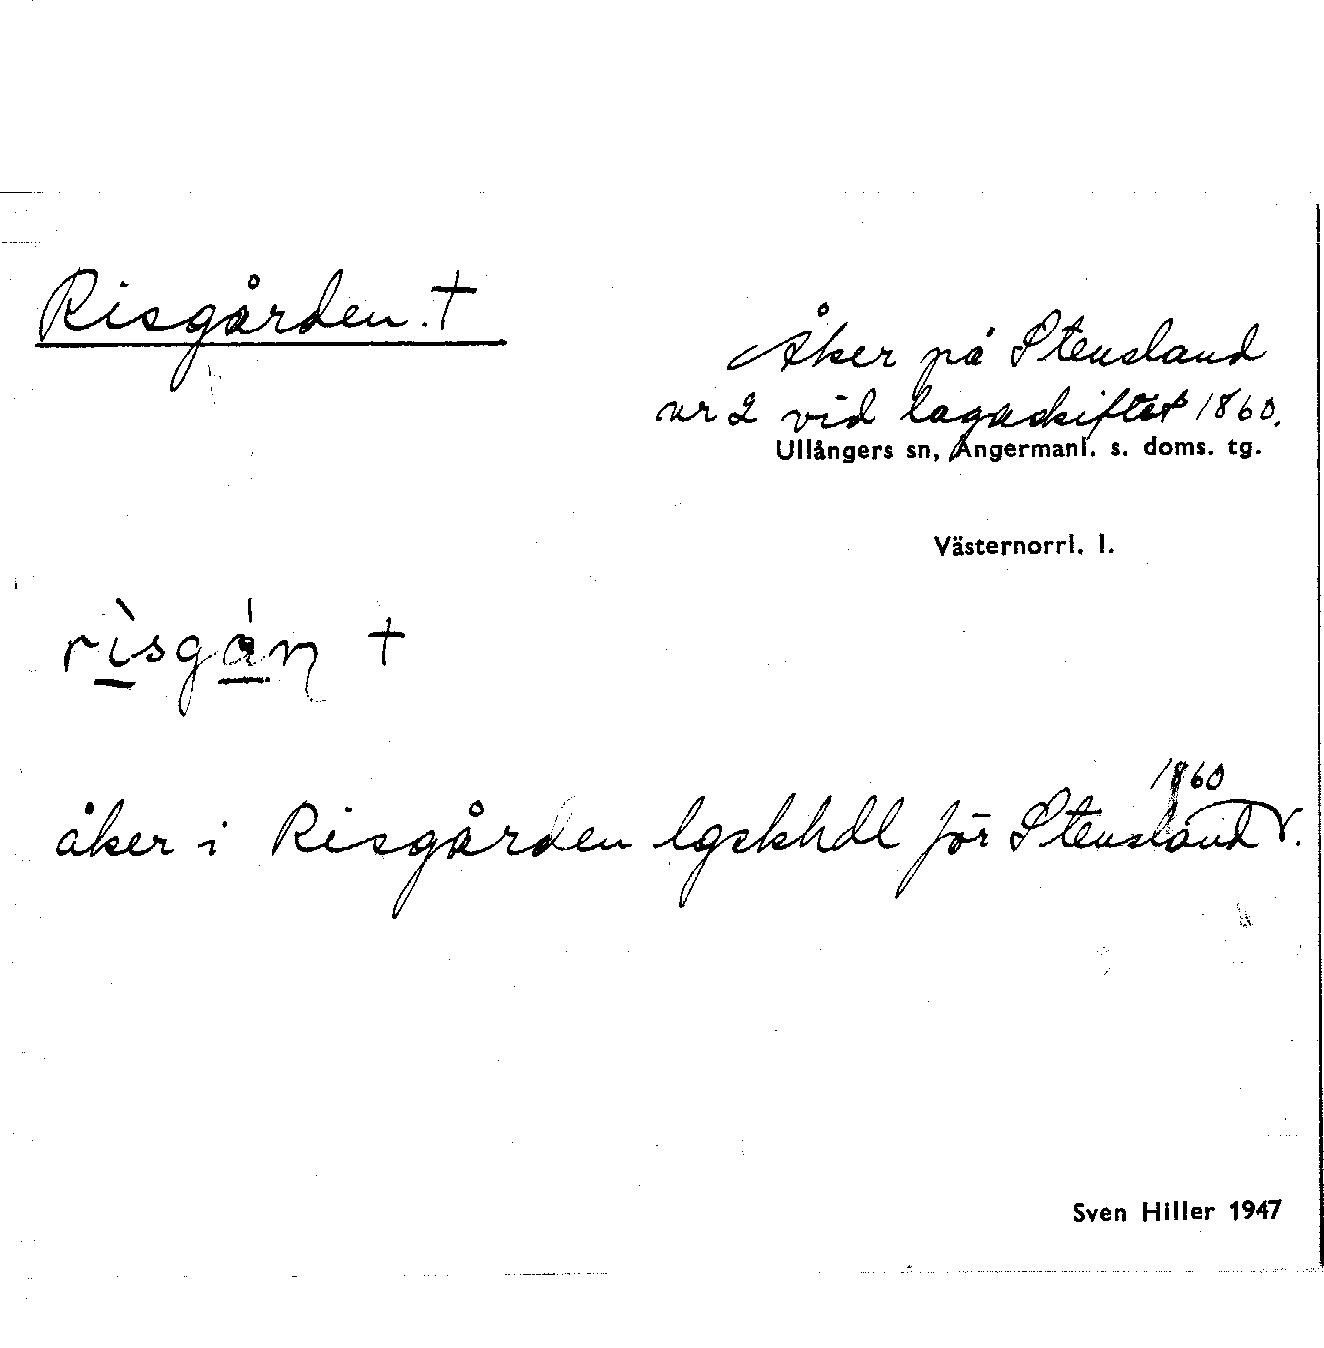 Risgården. +
Åker på Stensland
nr 2 vid lagaskiftet 1860.
Ullångers sn, Ångermanl. s. doms. tg.
Västernorrl. l.
rìsgán +
1860
åker i Risgården lgskhdl för Stensland
Sven Hiller 1947